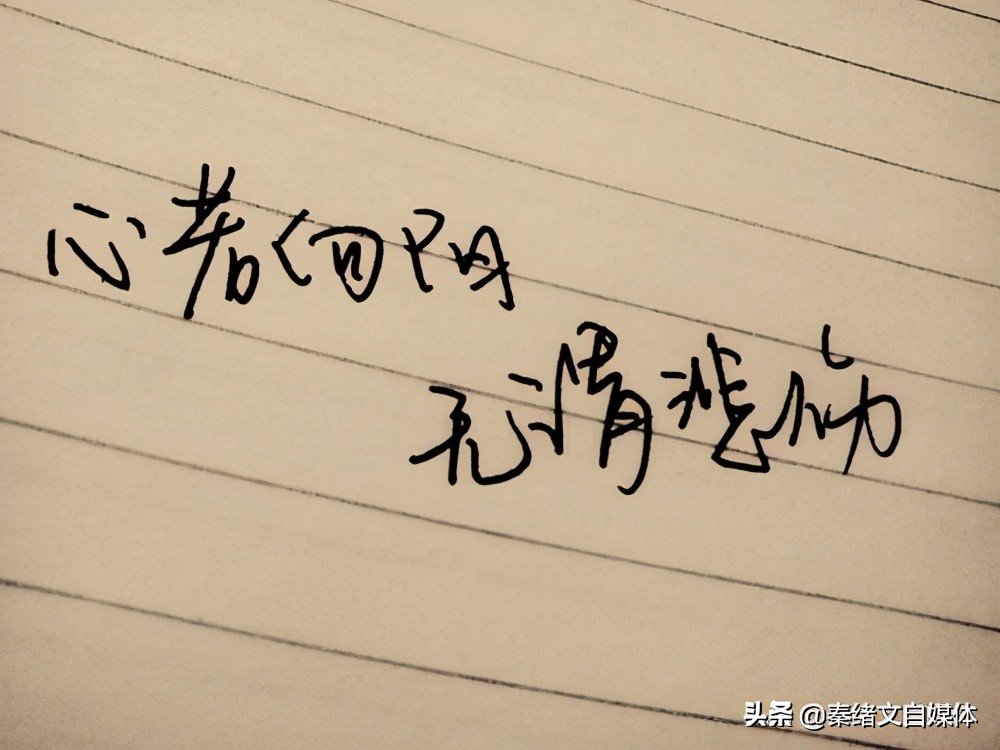 心若向阳
无情悲伤
头条 @秦绪文自媒体